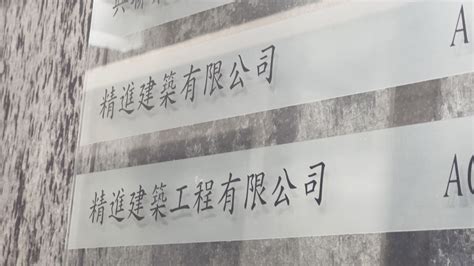 精進建築有限公司 A
精進建築工程有限公司 AC